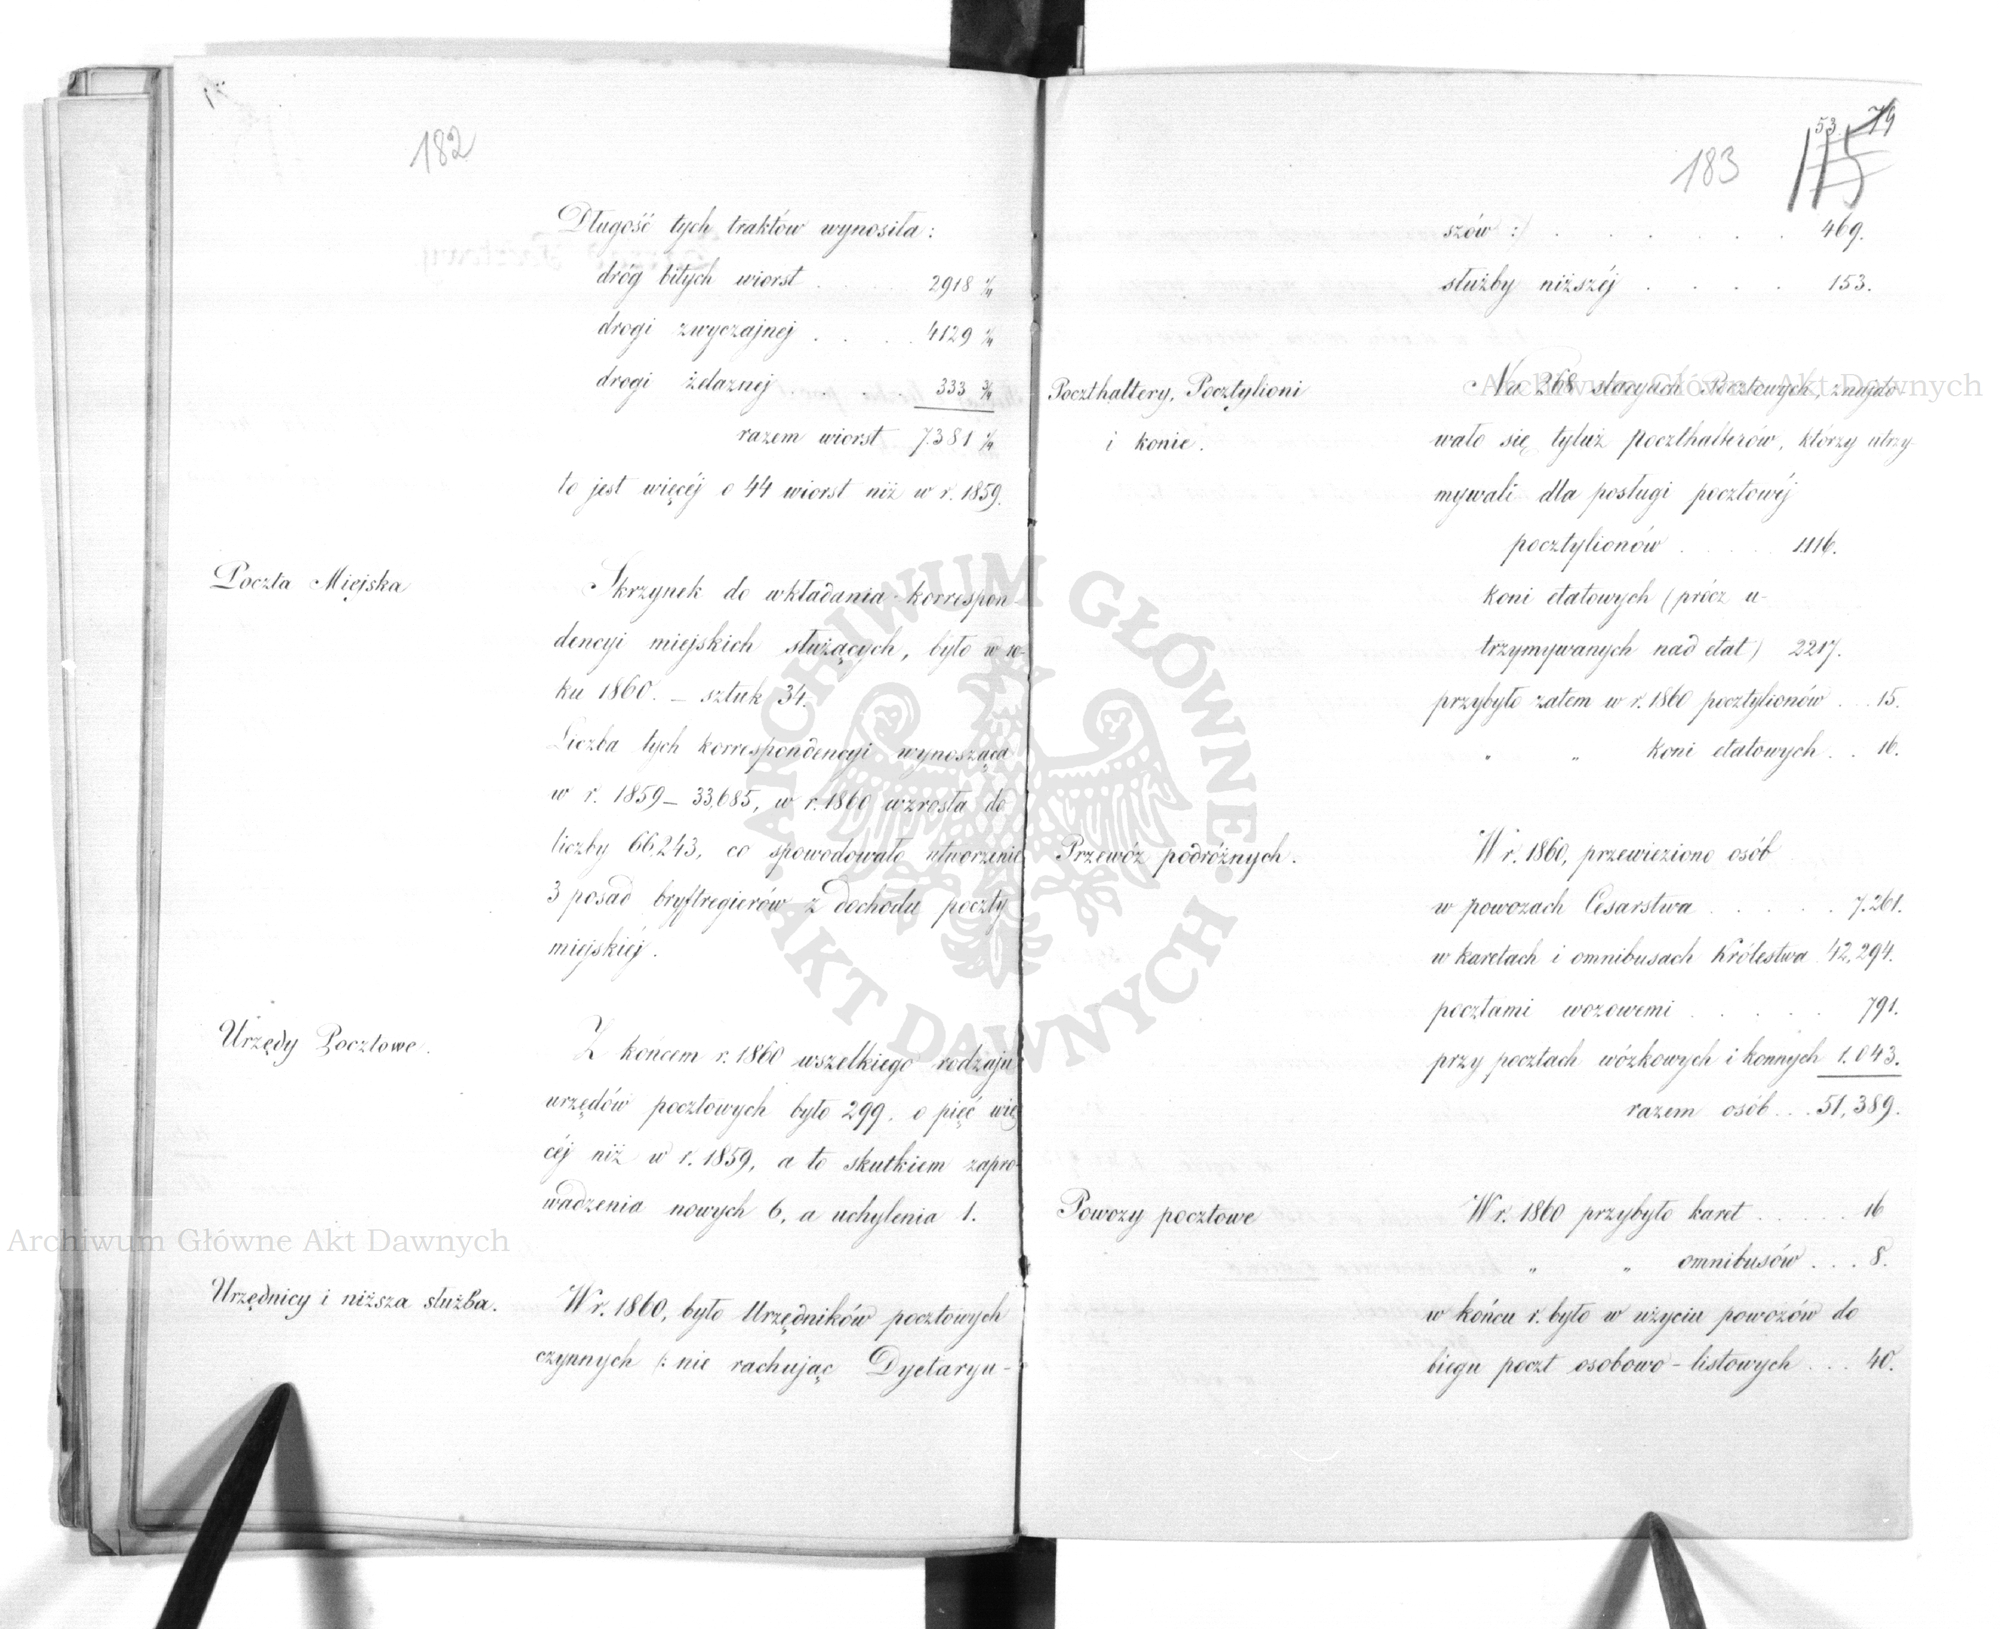 182
Długość tych traktów wynosiła:
dróg bitych wiorst . . . . 2918 1/4
drogi zwyczajnej . . . . 4129 1/4
drogi żelaznej . . . . 333 3/4
razem wiorst 7.381 1/4
to jest więcéj o 44 wiorst niż w r. 1859.
Poczta Miejska
Skrzynek do wkładania korrespon-
dencyi miejskich służących, było w ro-
ku 1860. – sztuk 34.
Liczba tych korrespondencyi wynosząca
w r. 1859 – 33,685, w r. 1860 wzrosła do
liczby 66,243, co spowodowało utworzenie
3 posad bryftregierów z dochodu poczty
miejskiéj.
Urzędy Pocztowe.
Z końcem r. 1860 wszelkiego rodzaju
urzędów pocztowych było 299, o pięć wię
céj niż w r. 1859, a to skutkiem zapro-
wadzenia nowych 6, a uchylenia 1.
Urzędnicy i niższa służba.
W r. 1860, było Urzędników pocztowych
czynnych /: nie rachując Dyetaryu-
53. 79
183 115
szów :/ . . . . . . 469.
służby niższéj . . . . 153.
Poczthaltery, Pocztylioni
i konie.
Na 268 stacyach Pocztowych, znajdo-
wało się tyluż poczthalterów, którzy utrzy
mywali dla posługi pocztowéj
pocztylionów . . . . . 1116.
koni etatowych (prócz u-
trzymywanych nad etat) 2217.
przybyło zatem w r. 1860 pocztylionów . . 15.
" " koni etatowych . . 16.
Przewóz podróżnych.
W r. 1860, przewieziono osób
w powozach Cesarstwa . . . . . 7.261.
w karetach i omnibusach Królestwa 42,294.
pocztami wozowemi . . . . . 791.
przy pocztach wózkowych i konnych 1.043.
razem osób . . . 51,389.
Powozy pocztowe
W r. 1860 przybyło karet . . . . . 16
" " omnibusów . . . 8.
w końcu r. było w użyciu powozów do
biegu poczt osobowo-listowych . . . 40.
Archiwum Główne Akt Dawnych
Archiwum Główne Akt Dawnych
ARCHIWUM GŁÓWNE AKT DAWNYCH